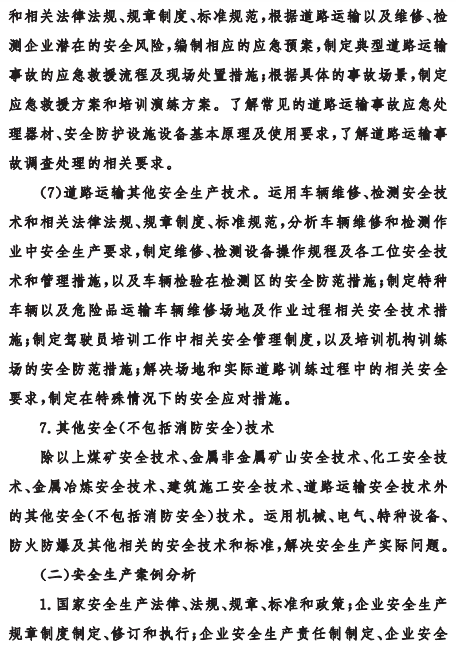 和相关法律法规、规章制度、标准规范,根据道路运输以及维修、检
测企业潜在的安全风险,编制相应的应急预案,制定典型道路运输
事故的应急救援流程及现场处置措施;根据具体的事故场景,制定
应急救援方案和培训演练方案。了解常见的道路运输事故应急处
理器材、安全防护设施设备基本原理及使用要求,了解道路运输事
故调查处理的相关要求。
(7)道路运输其他安全生产技术。运用车辆维修、检测安全技
术和相关法律法规、规章制度、标准规范,分析车辆维修和检测作
业中安全生产要求,制定维修、检测设备操作规程及各工位安全技
术和管理措施,以及车辆检验在检测区的安全防范措施;制定特种
车辆以及危险品运输车辆维修场地及作业过程相关安全技术措
施;制定驾驶员培训工作中相关安全管理制度,以及培训机构训练
场的安全防范措施;解决场地和实际道路训练过程中的相关安全
要求,制定在特殊情况下的安全应对措施。
7.其他安全(不包括消防安全)技术
除以上煤矿安全技术、金属非金属矿山安全技术、化工安全技
术、金属冶炼安全技术、建筑施工安全技术、道路运输安全技术外
的其他安全(不包括消防安全)技术。运用机械、电气、特种设备、
防火防爆及其他相关的安全技术和标准,解决安全生产实际问题。
(二)安全生产案例分析
1.国家安全生产法律、法规、规章、标准和政策;企业安全生产
规章制度制定、修订和执行;企业安全生产责任制制定、企业安全